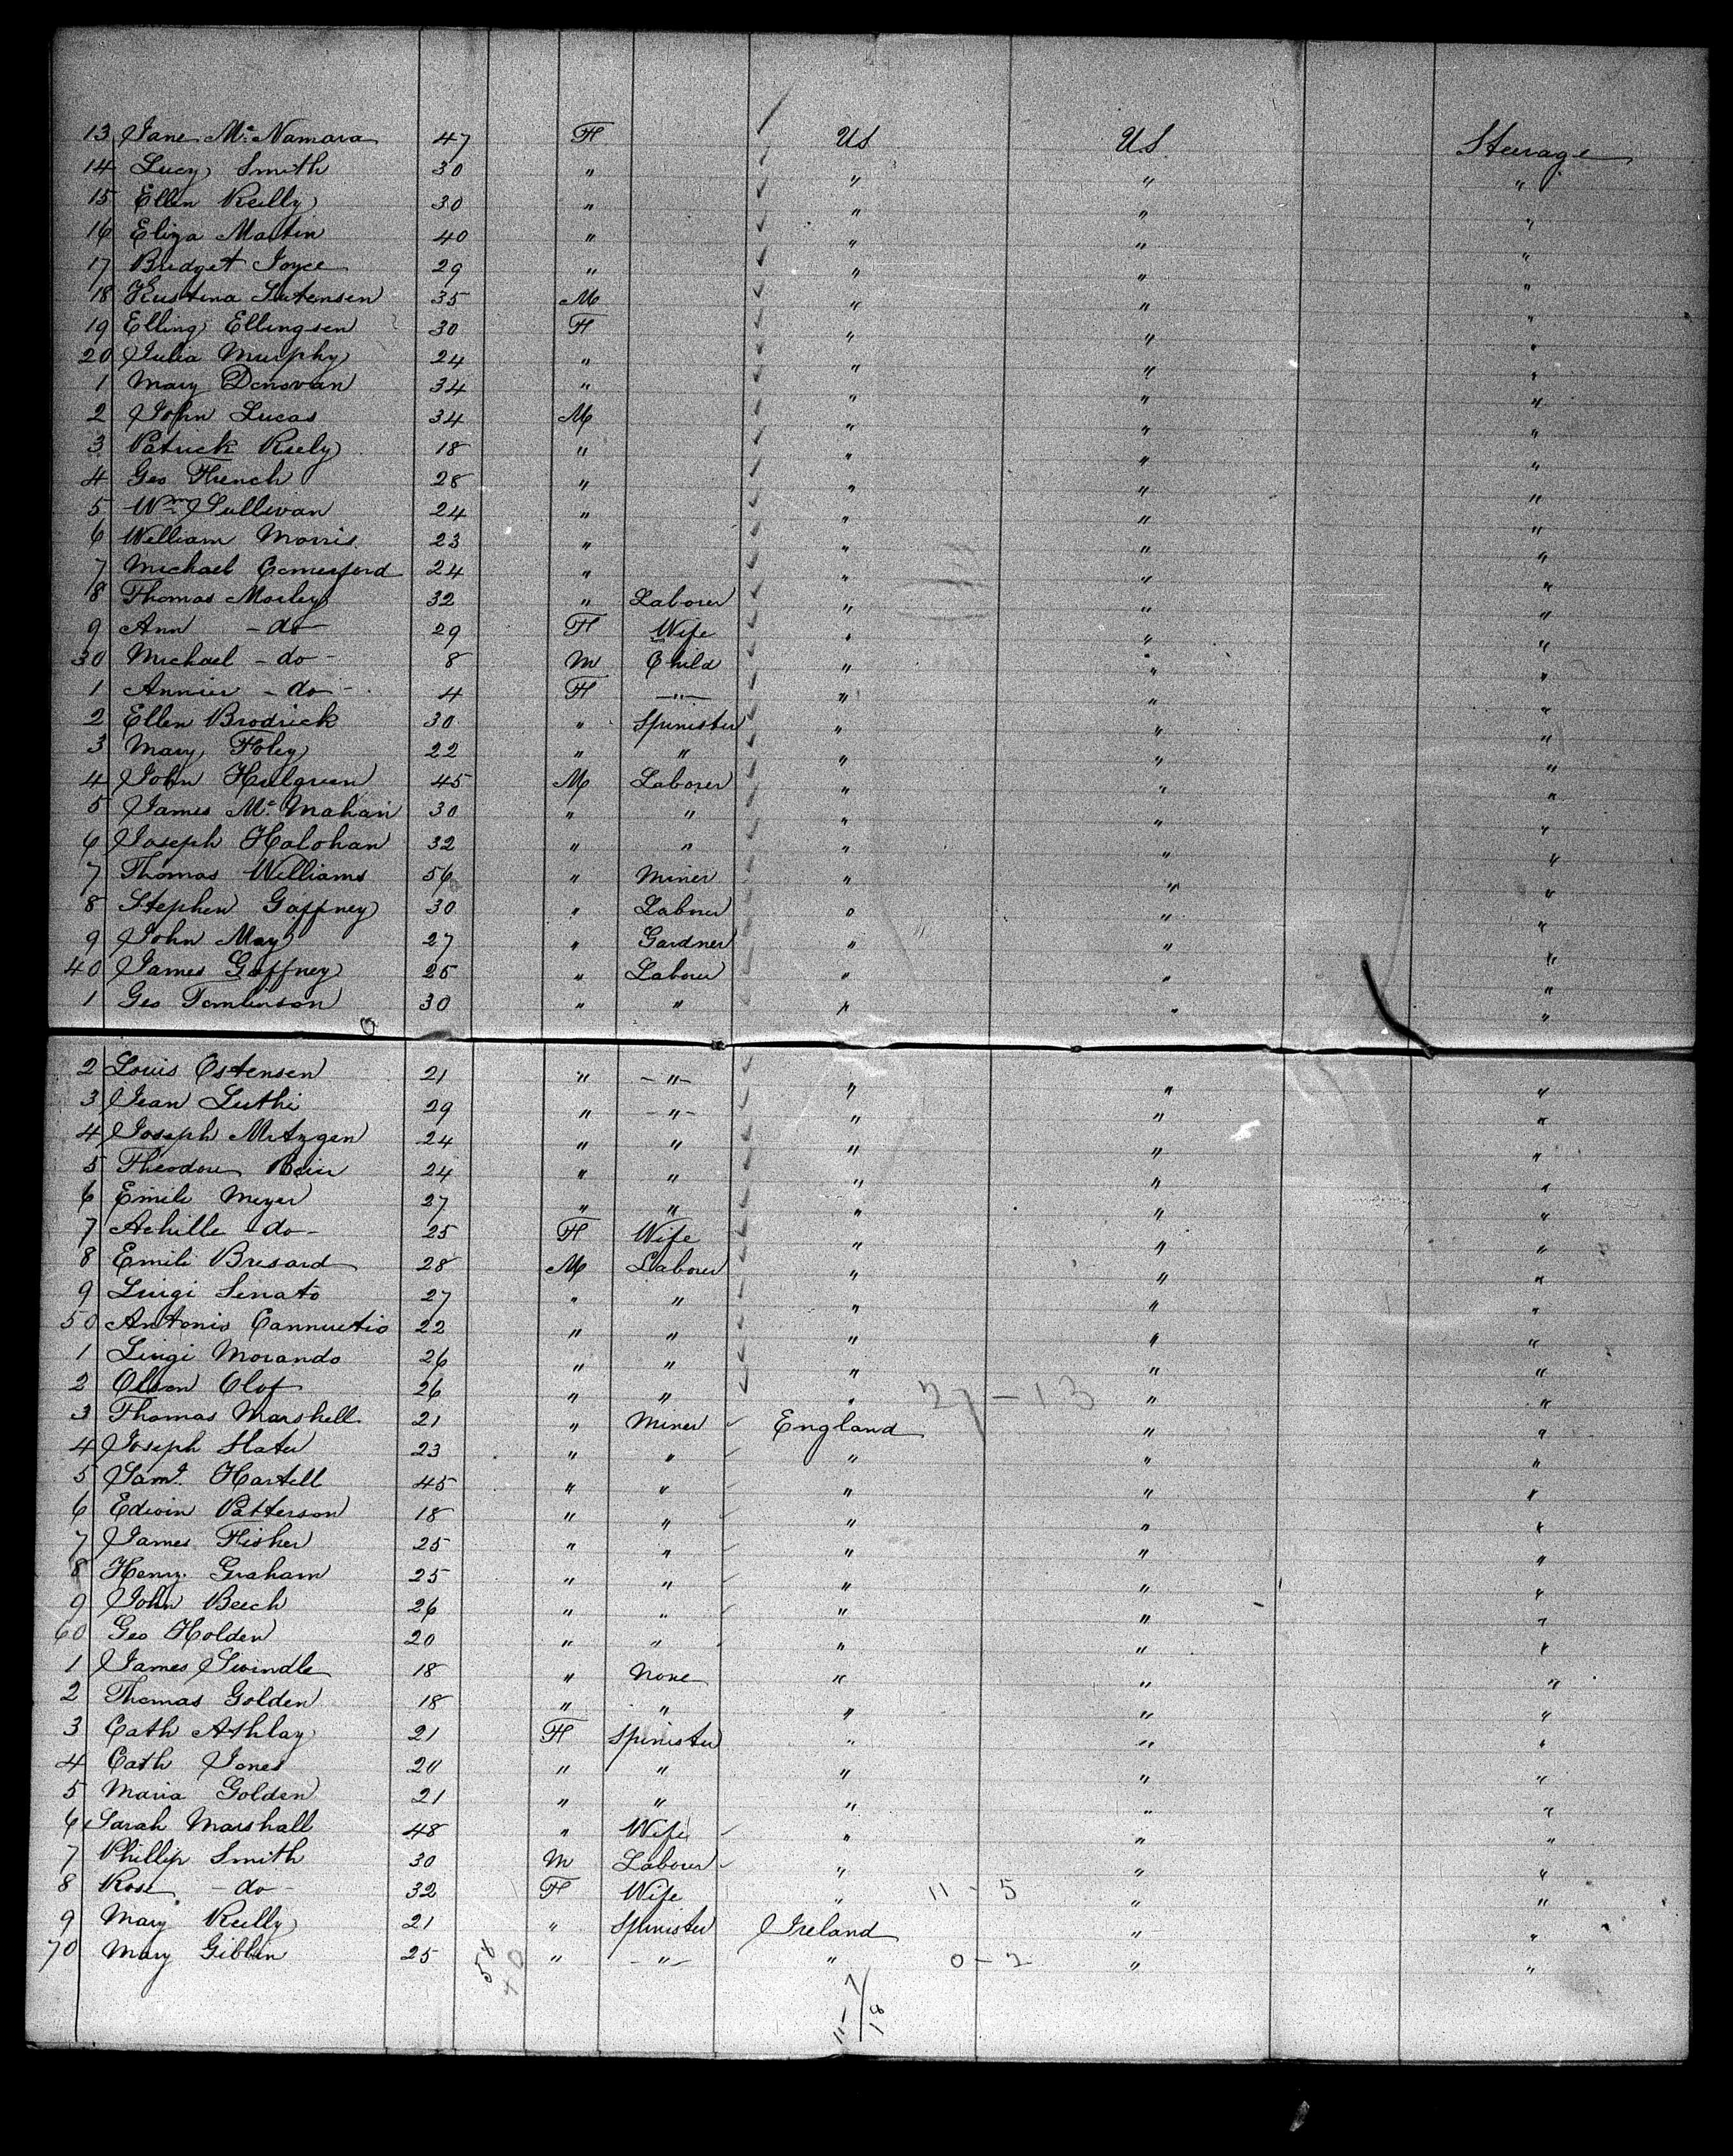 13 Jane Mc Namara 47 F US US Steerage
14 Lucy Smith 30 " " " "
15 Ellen Reilly 30 " " " "
16 Eliza Martin 40 " " " "
17 Bridget Joyce 29 " " " "
18 35 M " " "
19 Elling Ellingsen 30 F " " "
20 Julia Murphy 24 " " " "
1 Mary Donovan 34 " " " "
2 John Lucas 34 M " " "
3 Patrick 18 " " " "
4 Geo French 28 " " " "
5 Wm Sullivan 24 " " " "
6 William Morris 23 " " " "
7 Michael Comerford 24 " " " "
8 Thomas Morley 32 " Laborer " " "
9 Ann - do - 29 F Wife " " "
30 Michael - do - 8 M Child " " "
1 Annie - do - 4 F - " - " " "
2 Ellen Brodrick 30 " Spinister " " "
3 Mary Foley 22 " " " " "
4 John 45 M Laborer " " "
5 James Mc Mahan 30 " " " " "
6 Joseph Halohan 32 " " " " "
7 Thomas Williams 56 " Miner " " "
8 Stephen Gaffney 30 " Laborer " " "
9 John May 27 " Gardner " " "
40 James Gaffney 25 " Laborer " " "
1 Geo Tomlinson 30 " " " " "
2 Louis Ostensen 21 " - " - " " "
3 Jean Luthi 29 " - " - " " "
4 Joseph Metzgen 24 " " " " "
5 Theodore 24 " " " " "
6 Emile Meyer 27 " " " " "
7 Achille - do - 25 F Wife " " "
8 Emile Bresard 28 M Laborer " " "
9 Luigi Senato 27 " " " " "
50 Antonio 22 " " " " "
1 Luigi Morando 26 " " " " "
2 Olson Olof 26 " " " 27-13 " "
3 Thomas Marshell 21 " Miner England " "
4 Joseph Slater 23 " " " " "
5 Saml. Hartell 45 " " " " "
6 Edwin Patterson 18 " " " " "
7 James Fisher 25 " " " " "
8 Henry Graham 25 " " " " "
9 John Beech 26 " " " " "
60 Geo Holden 20 " " " " "
1 James Swindle 18 " None " " "
2 Thomas Golden 18 " " " " "
3 Cath Ashlay 21 F Spinister " " "
4 Cath Jones 20 " " " " "
5 Maria Golden 21 " " " " "
6 Sarah Marshall 48 " Wife " " "
7 Phillip Smith 30 M Laborer " " "
8 Rose - do - 32 F Wife " 11-5 " "
9 Mary Reilly 21 " Spinister Ireland " "
70 Mary Giblin 25 " - " - " 0-2 " "